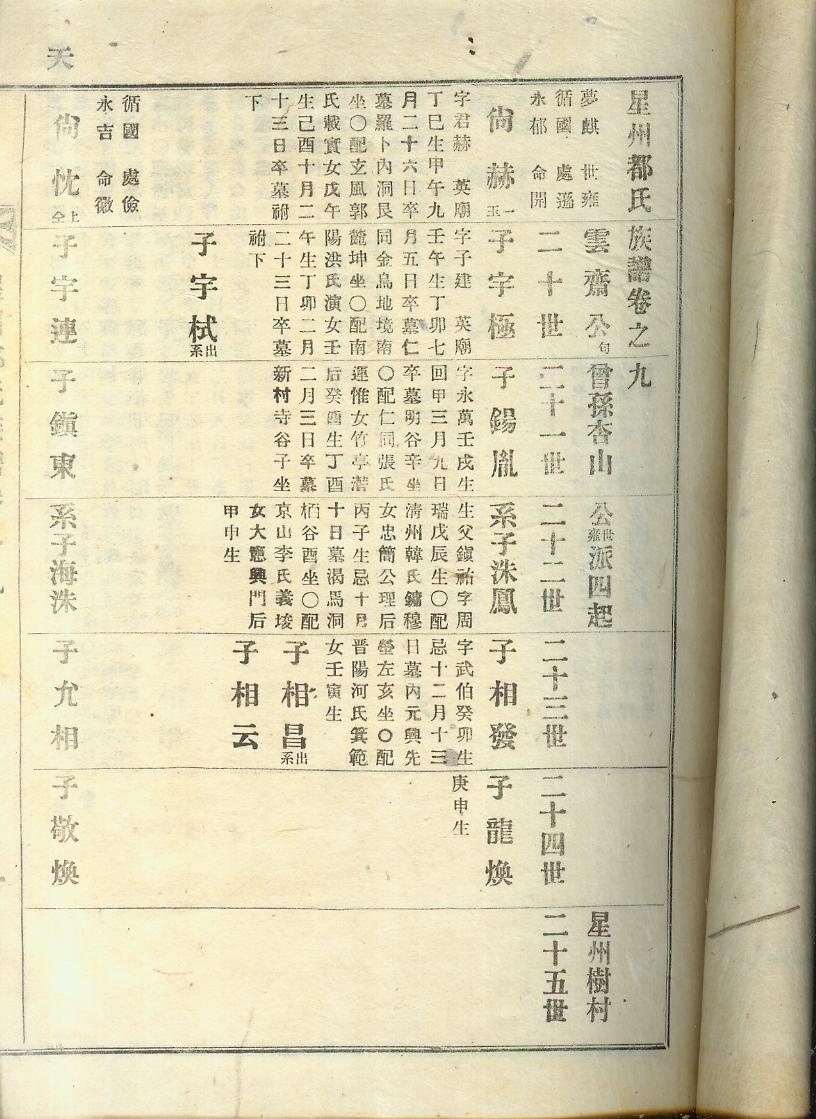 天
星州都氏族譜卷之九
雲齋公勻曾孫杏山公世雍派四起 星州樹村
夢麒 世雍
循國 處遜
永郁 命開
二十世
二十一世
二十二世
二十三世
二十四世
二十五世
尙赫
一玉
字君赫 英廟
丁巳生甲午九
月二十六日卒
墓羅卜內洞艮
坐〇配玄風郭
氏載實女戊午
生己酉十月二
十三日卒墓祔
下
子宇極
字子建 英廟
壬午生丁卯七
月五日卒墓仁
同金烏地境南
麓坤坐〇配南
陽洪氏演女壬
午生丁卯二月
二十三日卒墓
祔下
子宇栻
出系
子錫胤
字永萬壬戌生
回甲三月九日
卒墓明谷辛坐
〇配仁同張氏
運惟女竹亭濳
后癸酉生丁酉
二月三日卒墓
新村寺谷子坐
系子洙鳳
生父鎭祐字周
瑞戊辰生〇配
淸州韓氏鏞穆
女忠簡公理后
丙子生忌十月
十日墓渴馬洞
栢谷酉坐〇配
京山李氏義埈
女大憲興門后
甲申生
子相發
字武伯癸卯生
忌十二月十三
日墓內元興先
塋左亥坐〇配
晋陽河氏箕範
女壬寅生
子相昌
出系
子相云
子龍煥
庚申生
循國 處儉
永吉 命徽
尙忱
上仝
子宇連
子鎭東
系子海洙
子允相
子敬煥